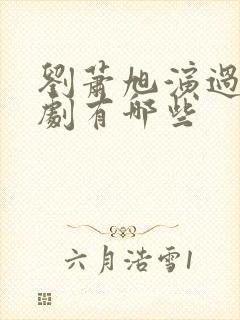 劉蕭旭演過
劇有哪些
六月浩雪1